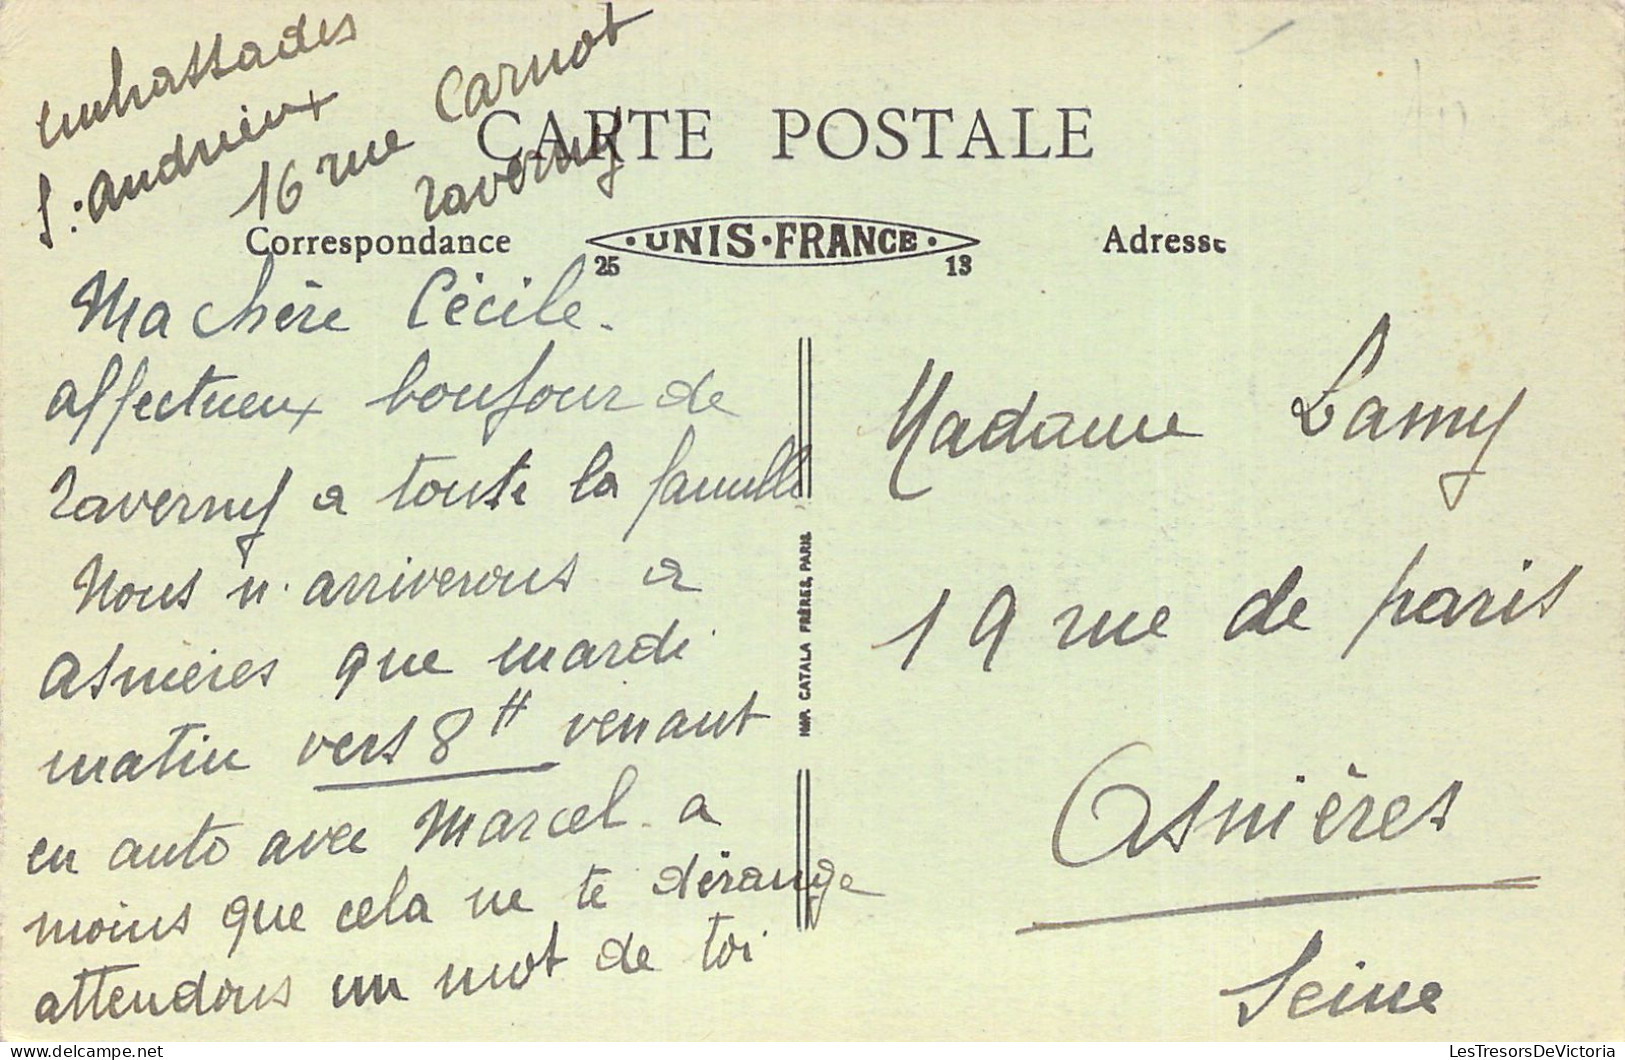 embrassades
S. Andrieux
16 rue Carnot
Taverny
CARTE POSTALE
Correspondance
UNIS-FRANCE
25 13
Adresse
Ma chère Cécile.
affectueux bonjour de
Taverny a toute la famille
Nous n'arriverons a
asnières que mardi
matin vers 8H venant
en auto avec Marcel. a
moins que cela ne te dérange
attendons un mot de toi
IMP. CATALA FRÈRES, PARIS
Madame Lamy
19 rue de paris
Asnières
Seine
LesTresorsDeVictoria